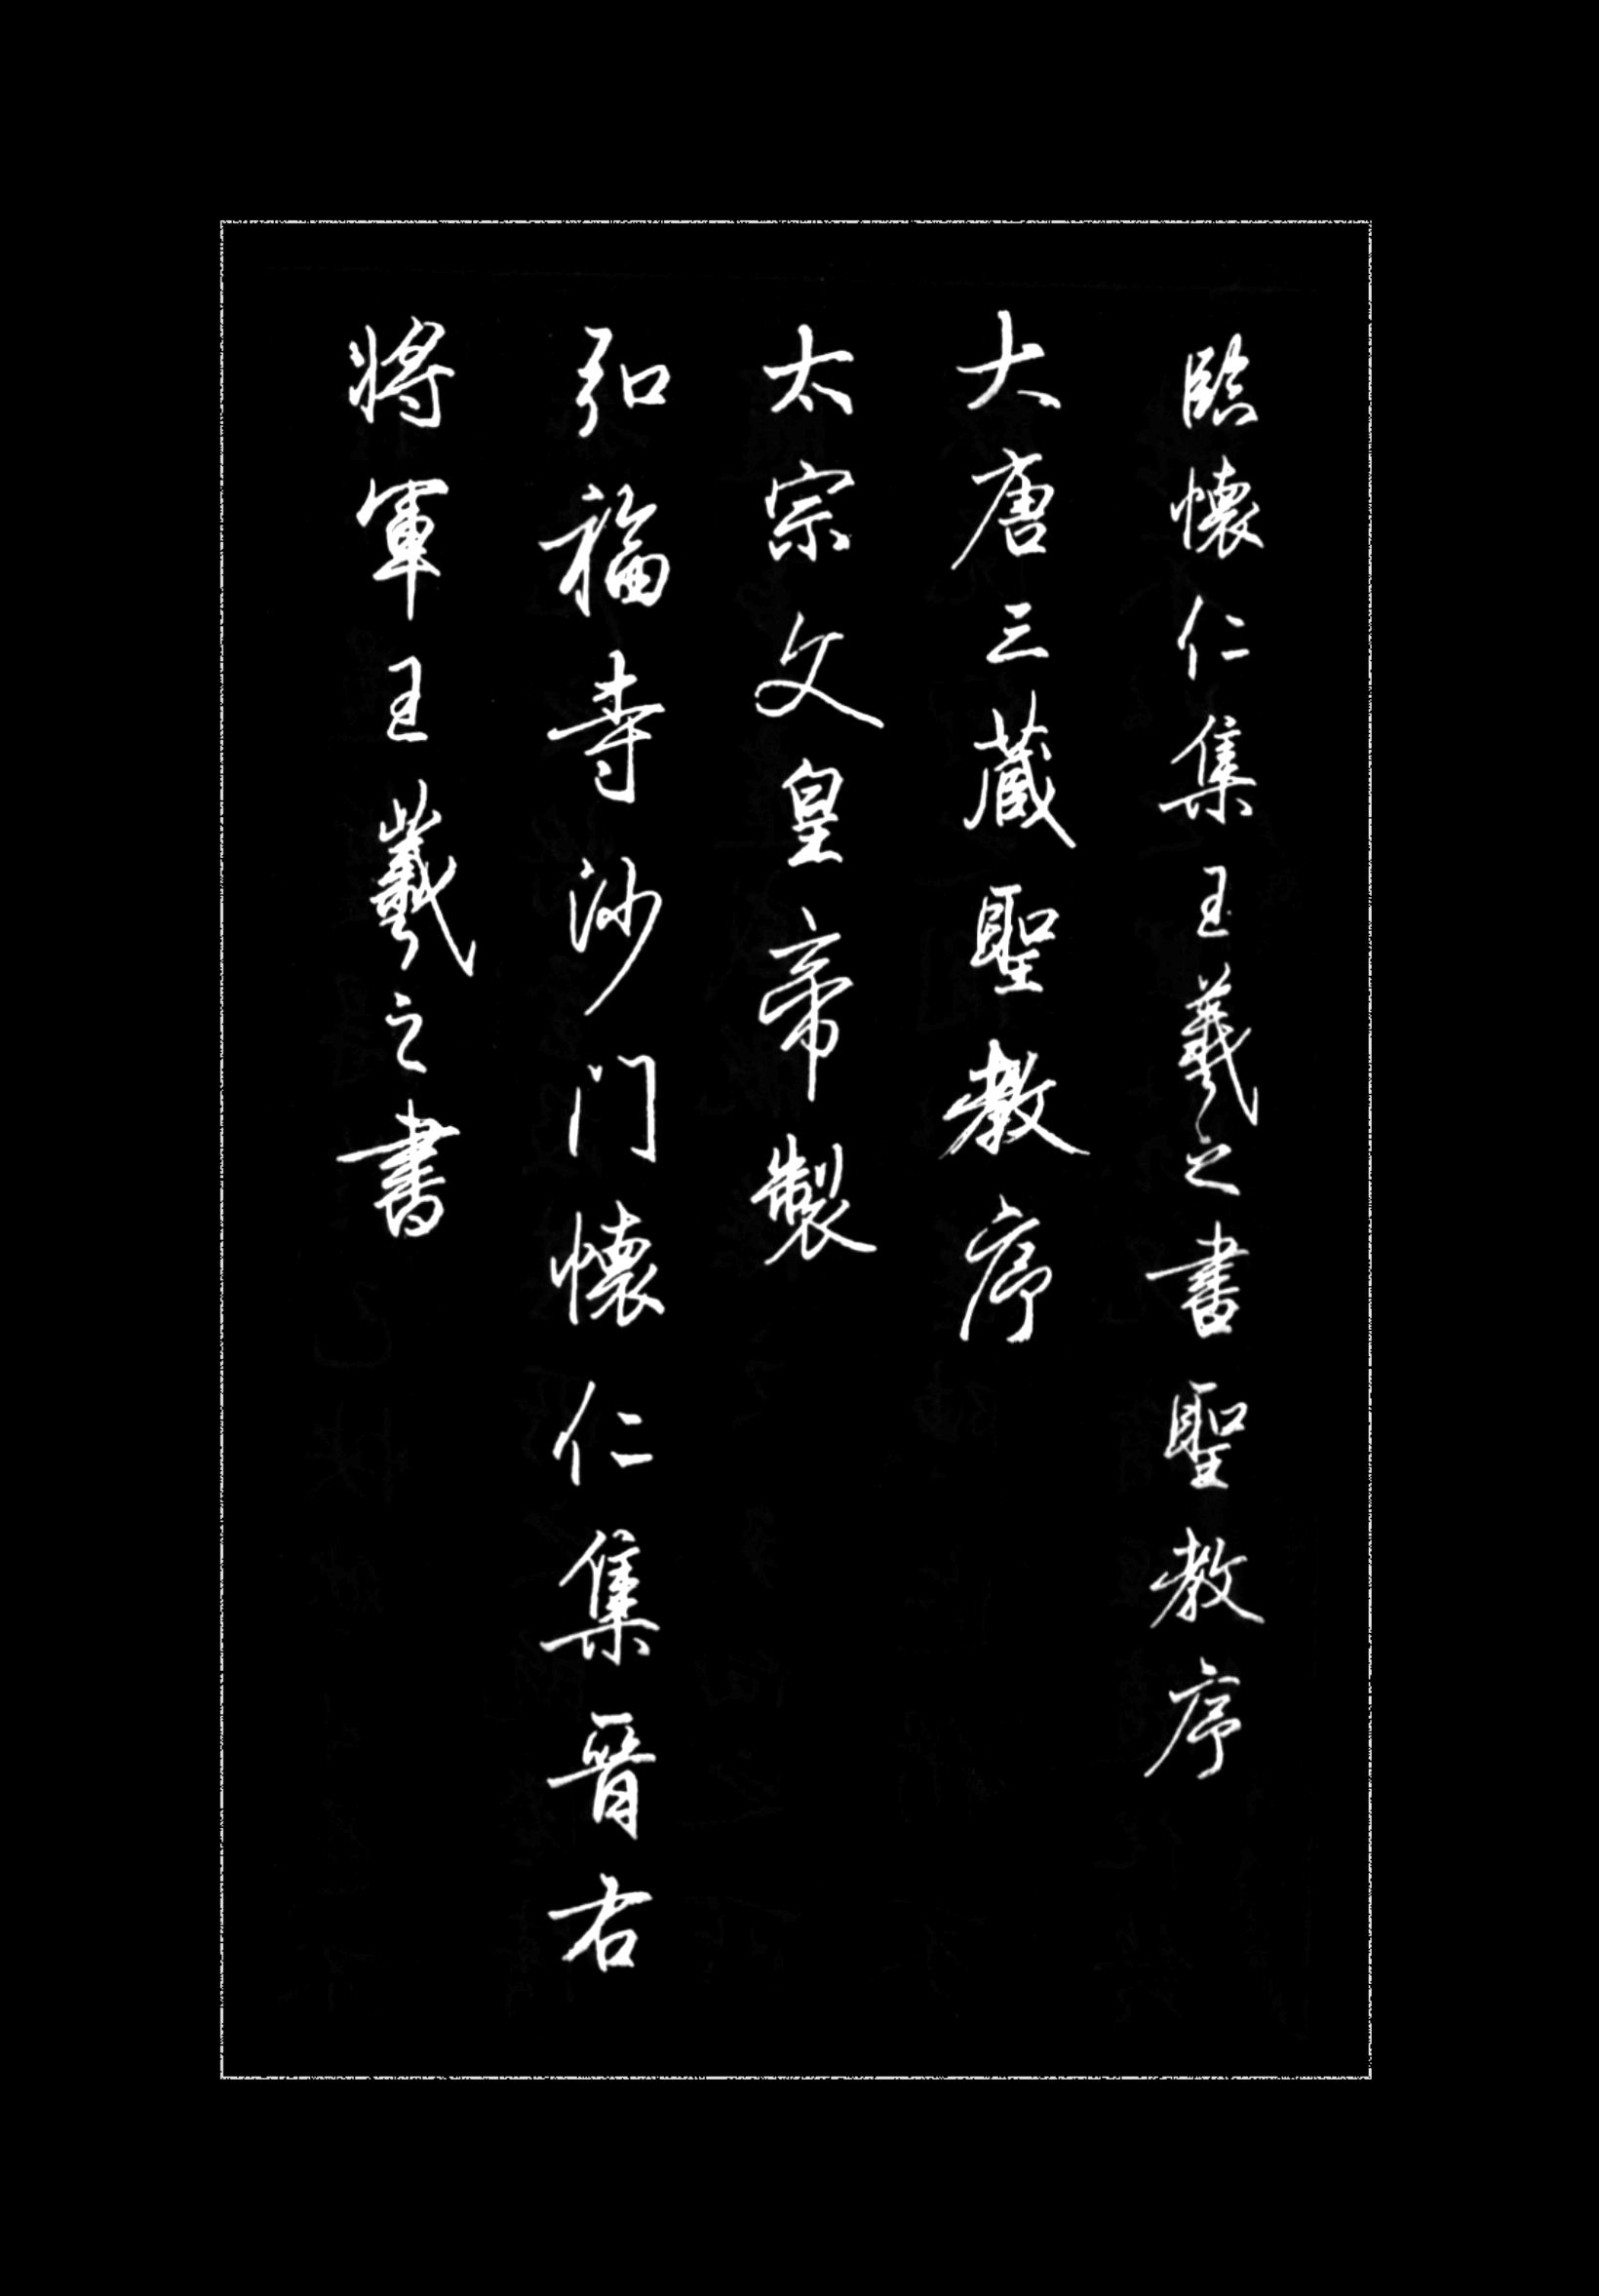 臨懷仁集王羲之書聖教序
大唐三藏聖教序
太宗文皇帝製
弘福寺沙门懷仁集晋右
將軍王羲之書